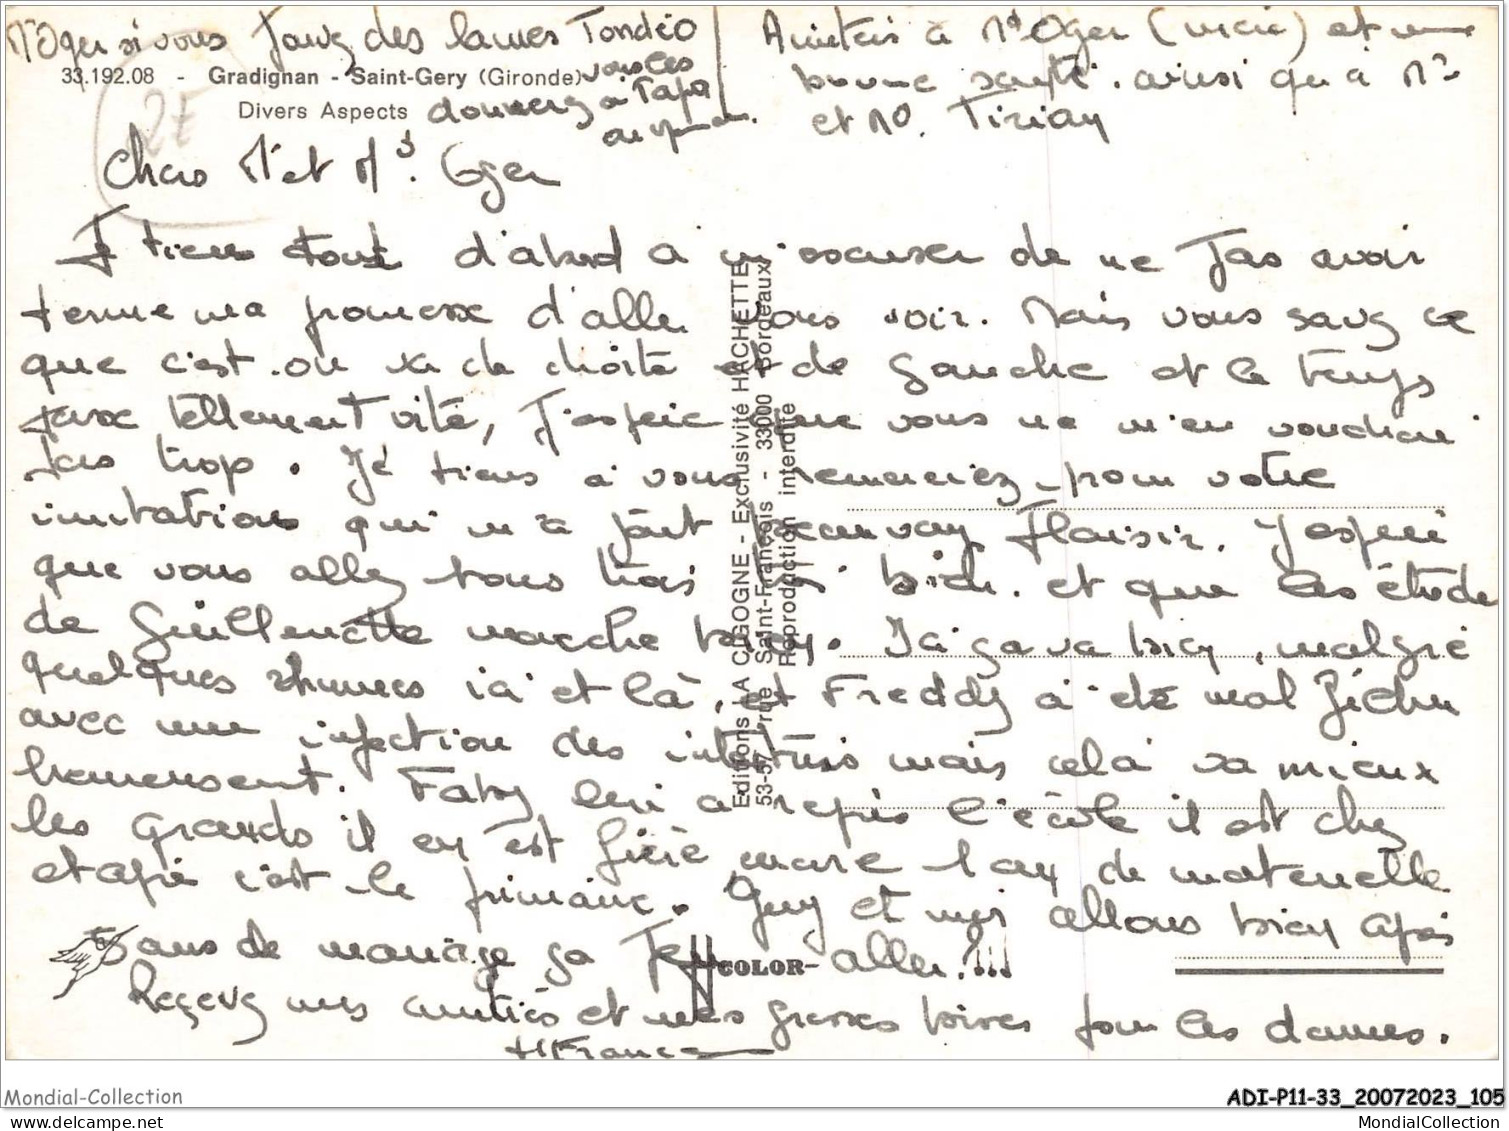 Mr Oger si vous pouvez des lames Tondéo
vous les
donnerez à Papa
33.192.08 - Gradignan - Saint-Gery (Gironde)
Divers Aspects
2E
Amitiés à Md Oger (mére) et une
bonne santé. ainsi qu'à Mr
et Md. Tiriau
Chers Mr et Md. Oger
Je tiens tout d'abord a m'excuser de ne pas avoir
tenue ma promesse d'aller vous voir. Mais vous savez ce
que c'est. on va de droite et de gauche et le temps
passe tellement vite, J'espére que vous ne m'en voudrai
pas trop. Je tiens à vous remerciez pour votre
invitation qui m'a fait beaucoup plaisir. J'espére
que vous allez tous trois trés bien. et que les études
de Guillemette marche bien. Ici ça va bien, malgré
quelques rhumes ici et là, et Freddy à été mal fichu
avec une infection des intestins mais celà va mieux
heureusement. Faby lui a repris l'école il est chez
les grands il en est fière, mare l'an de maternelle
et après c'est le primaire. Guy et moi allons bien après
5 ans de mariage ça peu aller!!!
Reçevez mes amitiés et mes grosses bises pour les dames.
M France
Editions LA CIGOGNE - Exclusivité HACHETTE
53-57, rue Saint-François - 33000 Bordeaux
Reproduction interdite
COLOR
Mondial-Collection
ADI-P11-33_20072023_105
MondialCollection